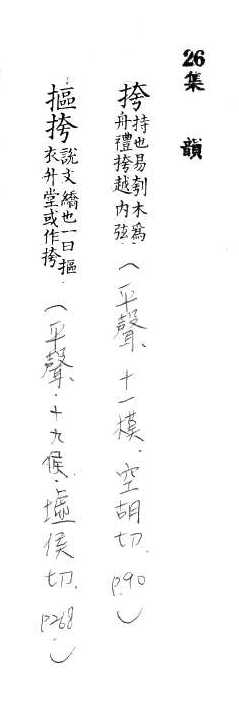 26集 韻
挎持也易刳木爲舟禮挎越内弦(平聲、十一模．空胡切．p.90)
摳挎說文繑也一曰摳衣升堂或作挎(平聲．十九侯．墟侯切．p268.)